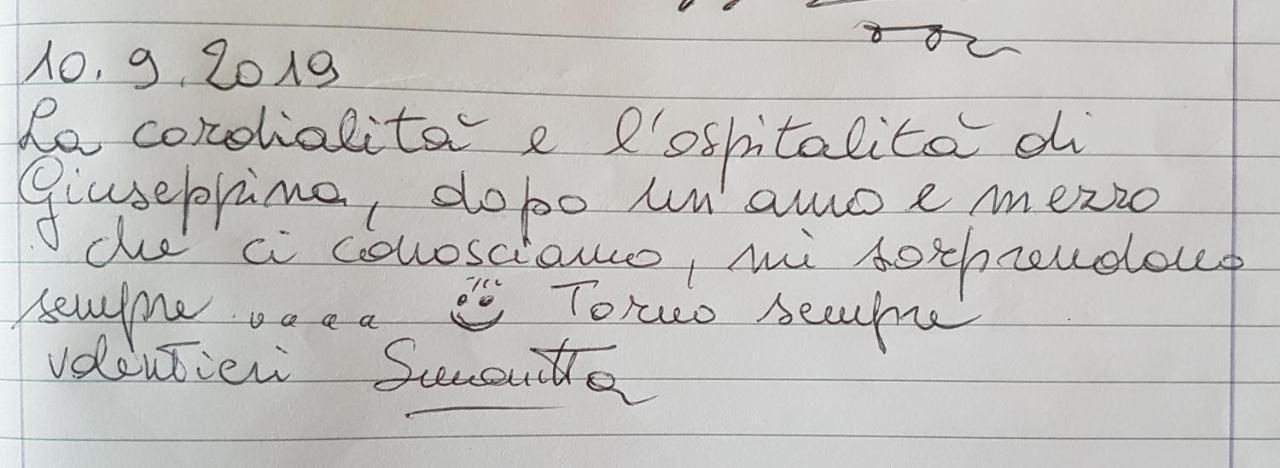 10.9.2019
La cordialità e l'ospitalità di
Giuseppina, dopo un'anno e mezzo
che ci conosciamo, mi sorprendono
sempre .... Torno sempre
volentieri Simonetta